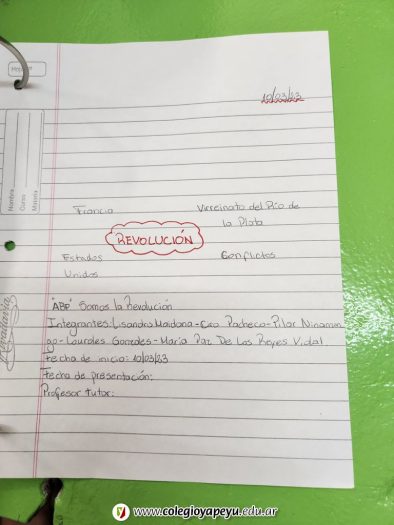 10/03/23
Nombre
Curso
Materia
Rivadavia
Francia
Virreinato del Río de
la Plata
REVOLUCIÓN
Estados
Unidos
Conflictos
"ABP" Somos la Revolución
Integrantes: Lisandro Maidana - Ciro Pacheco - Pilar
go - Lourdes Gonzales - María Paz De Los Reyes Vidal
Fecha de inicio: 10/03/23
Fecha de presentación:
Profesor tutor:
www.colegioyapeyu.edu.ar